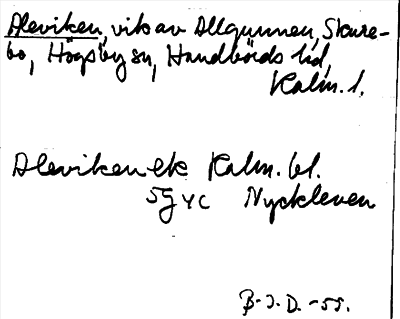 Aleviken, vik av Allgunnen, Skure-
bo, Högsby sn, Handbörds hd,
Kalm. l.
Aleviken ek Kalm. bl.
5g yc Nyckleven
B-J.D. -55.